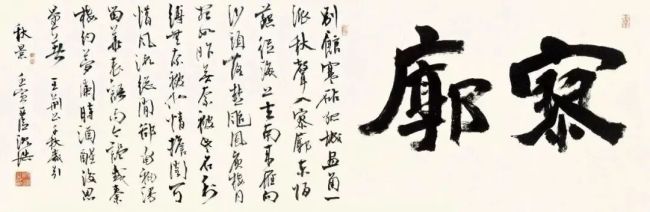 寥廓
別館寒砧孤城畫角一
派秋聲入寥廓東歸
燕從海上去南來雁向
沙頭落楚臺風庾樓月
宛如昨無奈被些名利
縛無奈被他情擔閣可
惜風流總閒卻當初漫
留華表語而今誤我秦
樓約夢闌時酒醒後思
量著 王荊公千秋歲引
秋景 壬寅